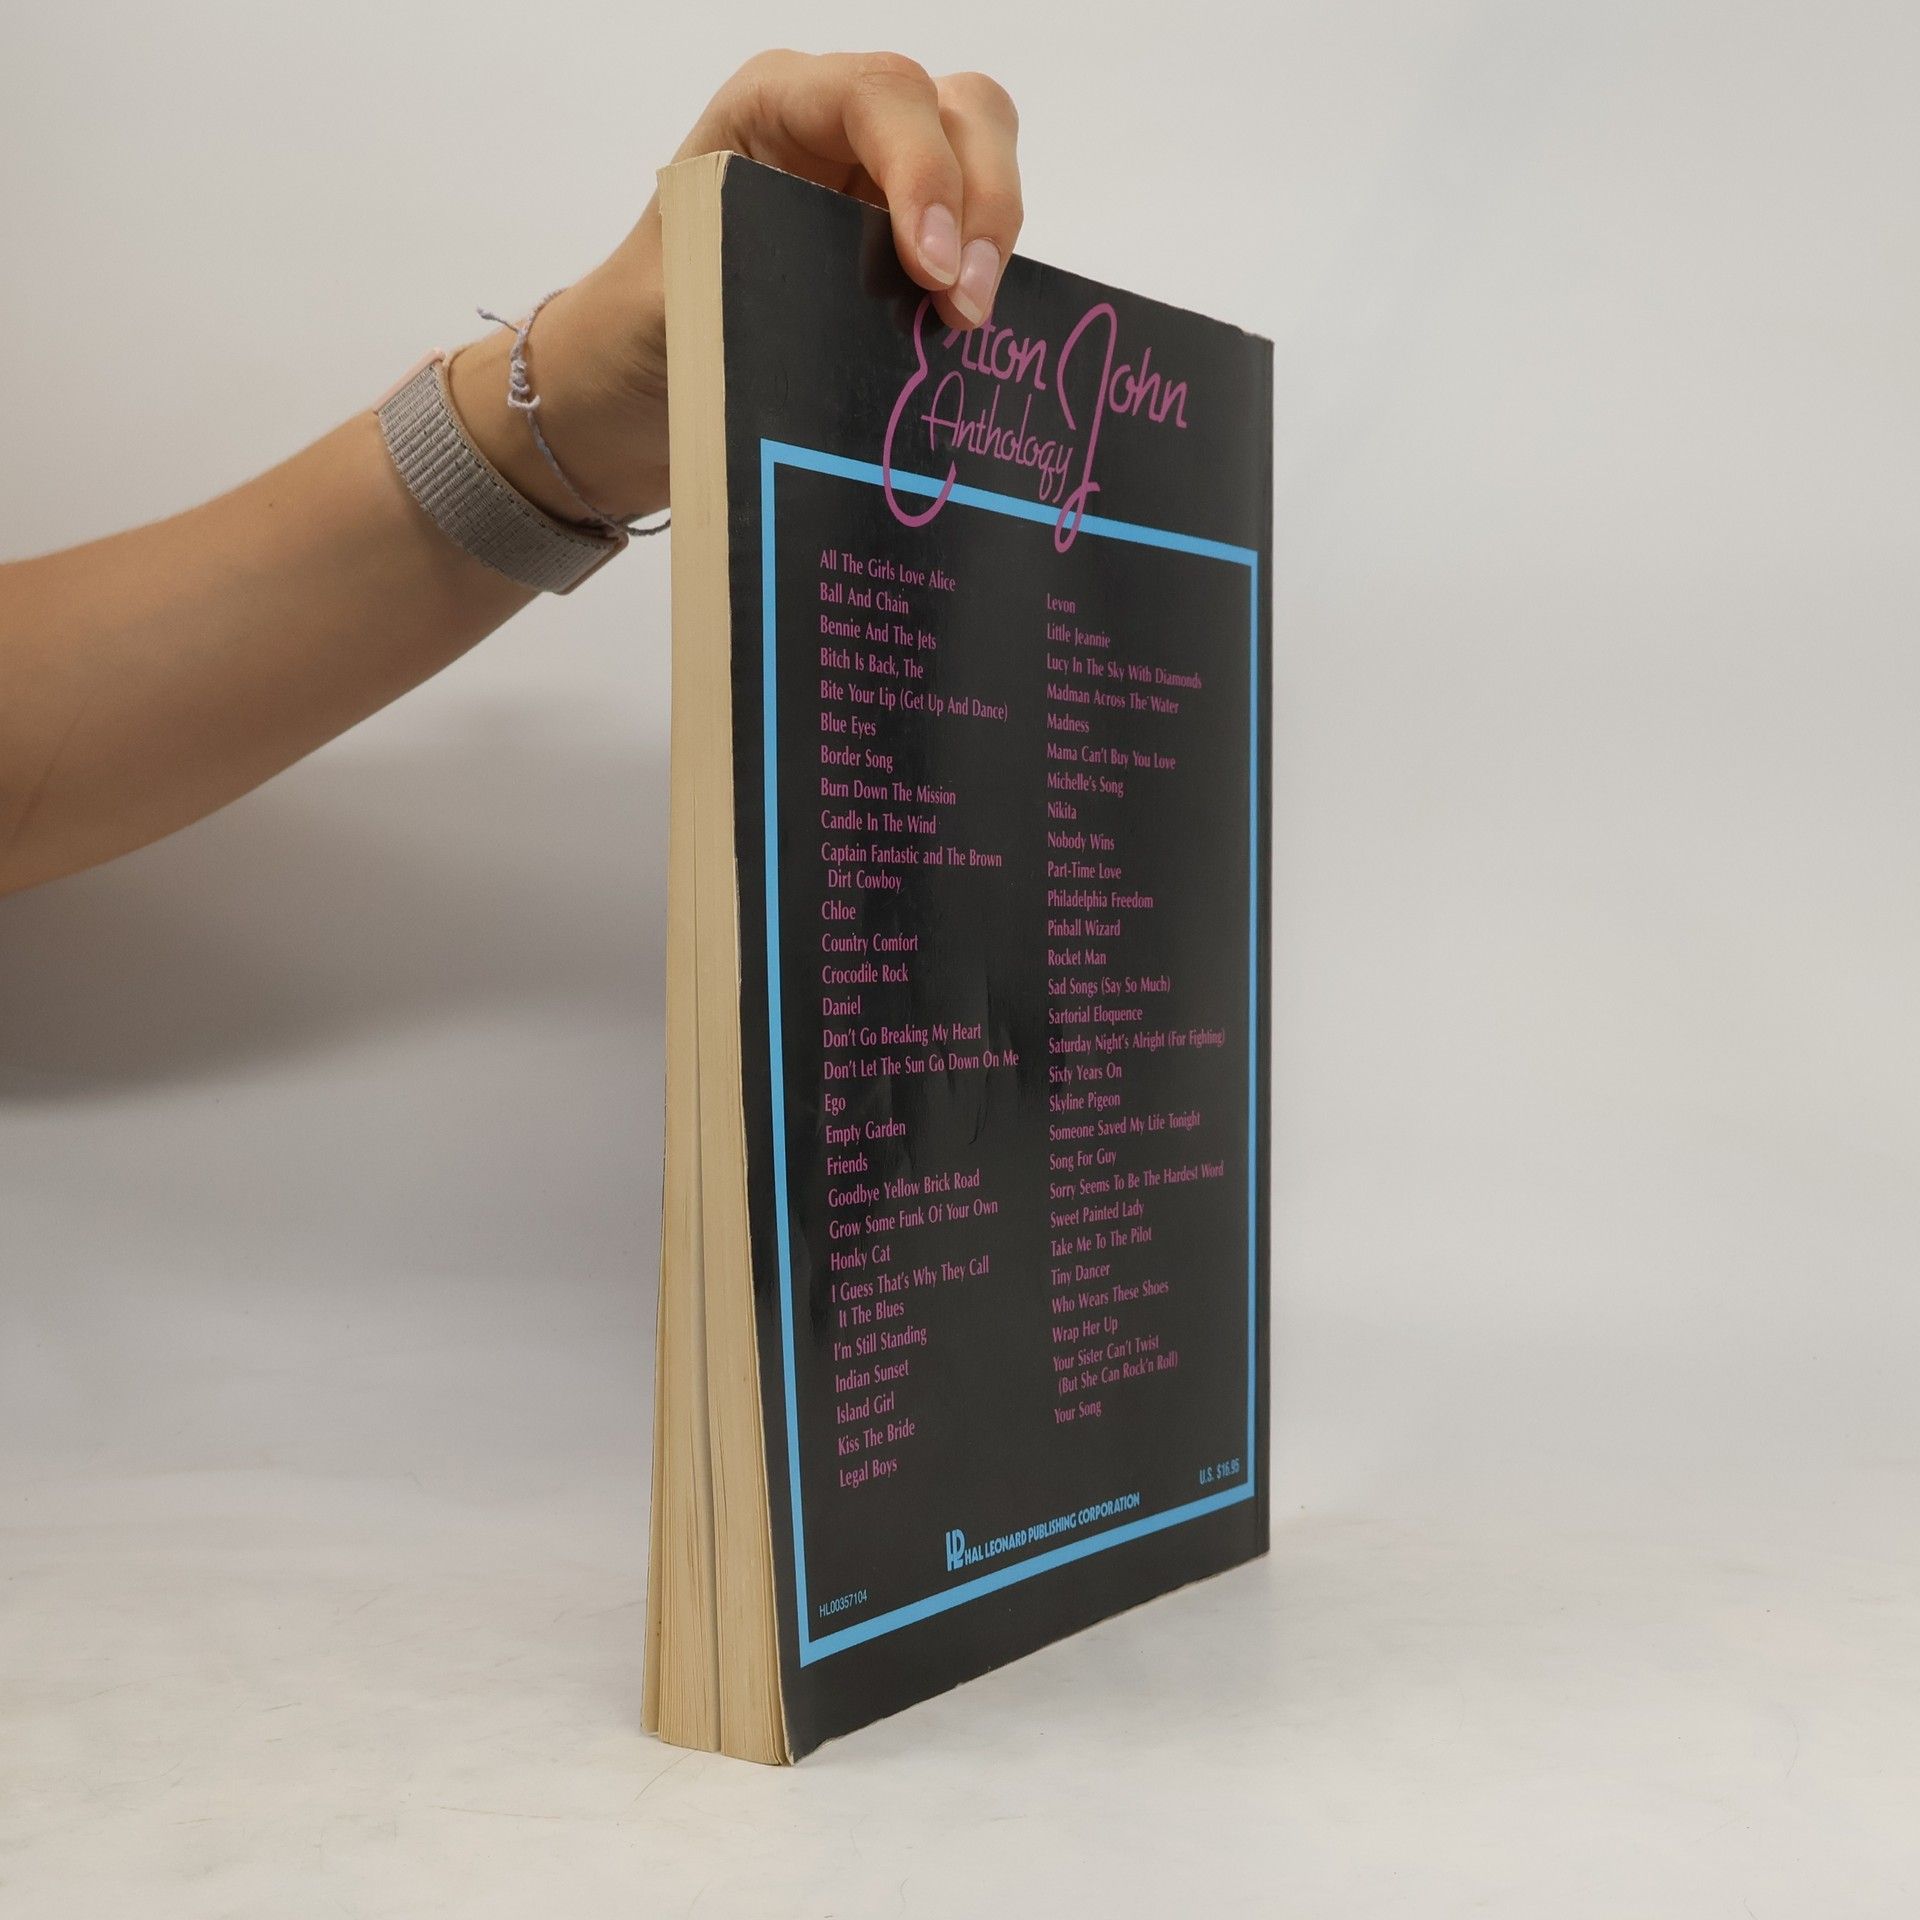 Elton John
Anthology
All The Girls Love Alice
Ball And Chain
Bennie And The Jets
Bitch Is Back, The
Bite Your Lip (Get Up And Dance)
Blue Eyes
Border Song
Burn Down The Mission
Candle In The Wind
Captain Fantastic and The Brown
Dirt Cowboy
Chloe
Country Comfort
Crocodile Rock
Daniel
Don't Go Breaking My Heart
Don't Let The Sun Go Down On Me
Ego
Empty Garden
Friends
Goodbye Yellow Brick Road
Grow Some Funk Of Your Own
Honky Cat
I Guess That's Why They Call
It The Blues
I'm Still Standing
Indian Sunset
Island Girl
Kiss The Bride
Legal Boys
Levon
Little Jeannie
Lucy In The Sky With Diamonds
Madman Across The Water
Madness
Mama Can't Buy You Love
Michelle's Song
Nikita
Nobody Wins
Part-Time Love
Philadelphia Freedom
Pinball Wizard
Rocket Man
Sad Songs (Say So Much)
Sartorial Eloquence
Saturday Night's Alright (For Fighting)
Sixty Years On
Skyline Pigeon
Someone Saved My Life Tonight
Song For Guy
Sorry Seems To Be The Hardest Word
Sweet Painted Lady
Take Me To The Pilot
Tiny Dancer
Who Wears These Shoes
Wrap Her Up
Your Sister Can't Twist
(But She Can Rock'n Roll)
Your Song
U.S. $16.95
HL HAL LEONARD PUBLISHING CORPORATION
HL00357104